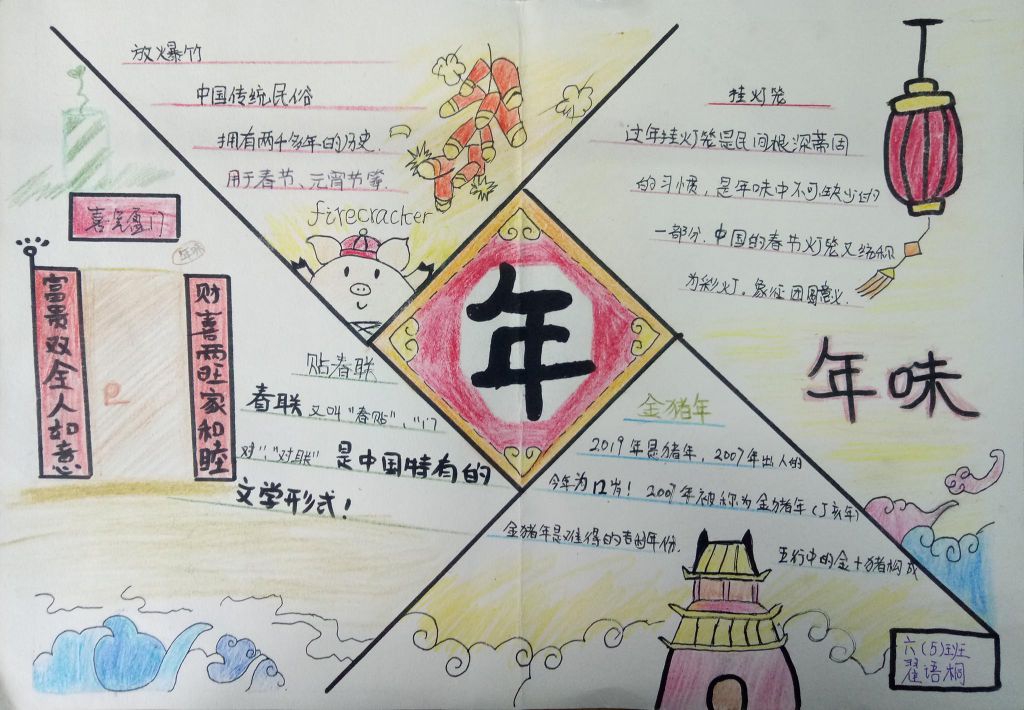 放爆竹
中国传统民俗
拥有两千多年的历史.
用于春节、元宵节等.
firecracker
挂灯笼
过年挂灯笼是民间根深蒂固
的习惯，是年味中不可缺少的
一部分.中国的春节灯笼又统称
为彩灯。象征团圆意义.
年味
喜气盈门
年味
富贵双全人如意
财喜两旺家和睦
年
贴春联
春联又叫"春贴"、"门
对""对联"是中国特有的
文学形式！
金猪年
2019年是猪年，2007年出人的
今年为12岁！2007年被称为金猪年(丁亥年)
金猪年是难得的吉的年份.
五行中的金+猪构成
六(5)班
翟语桐